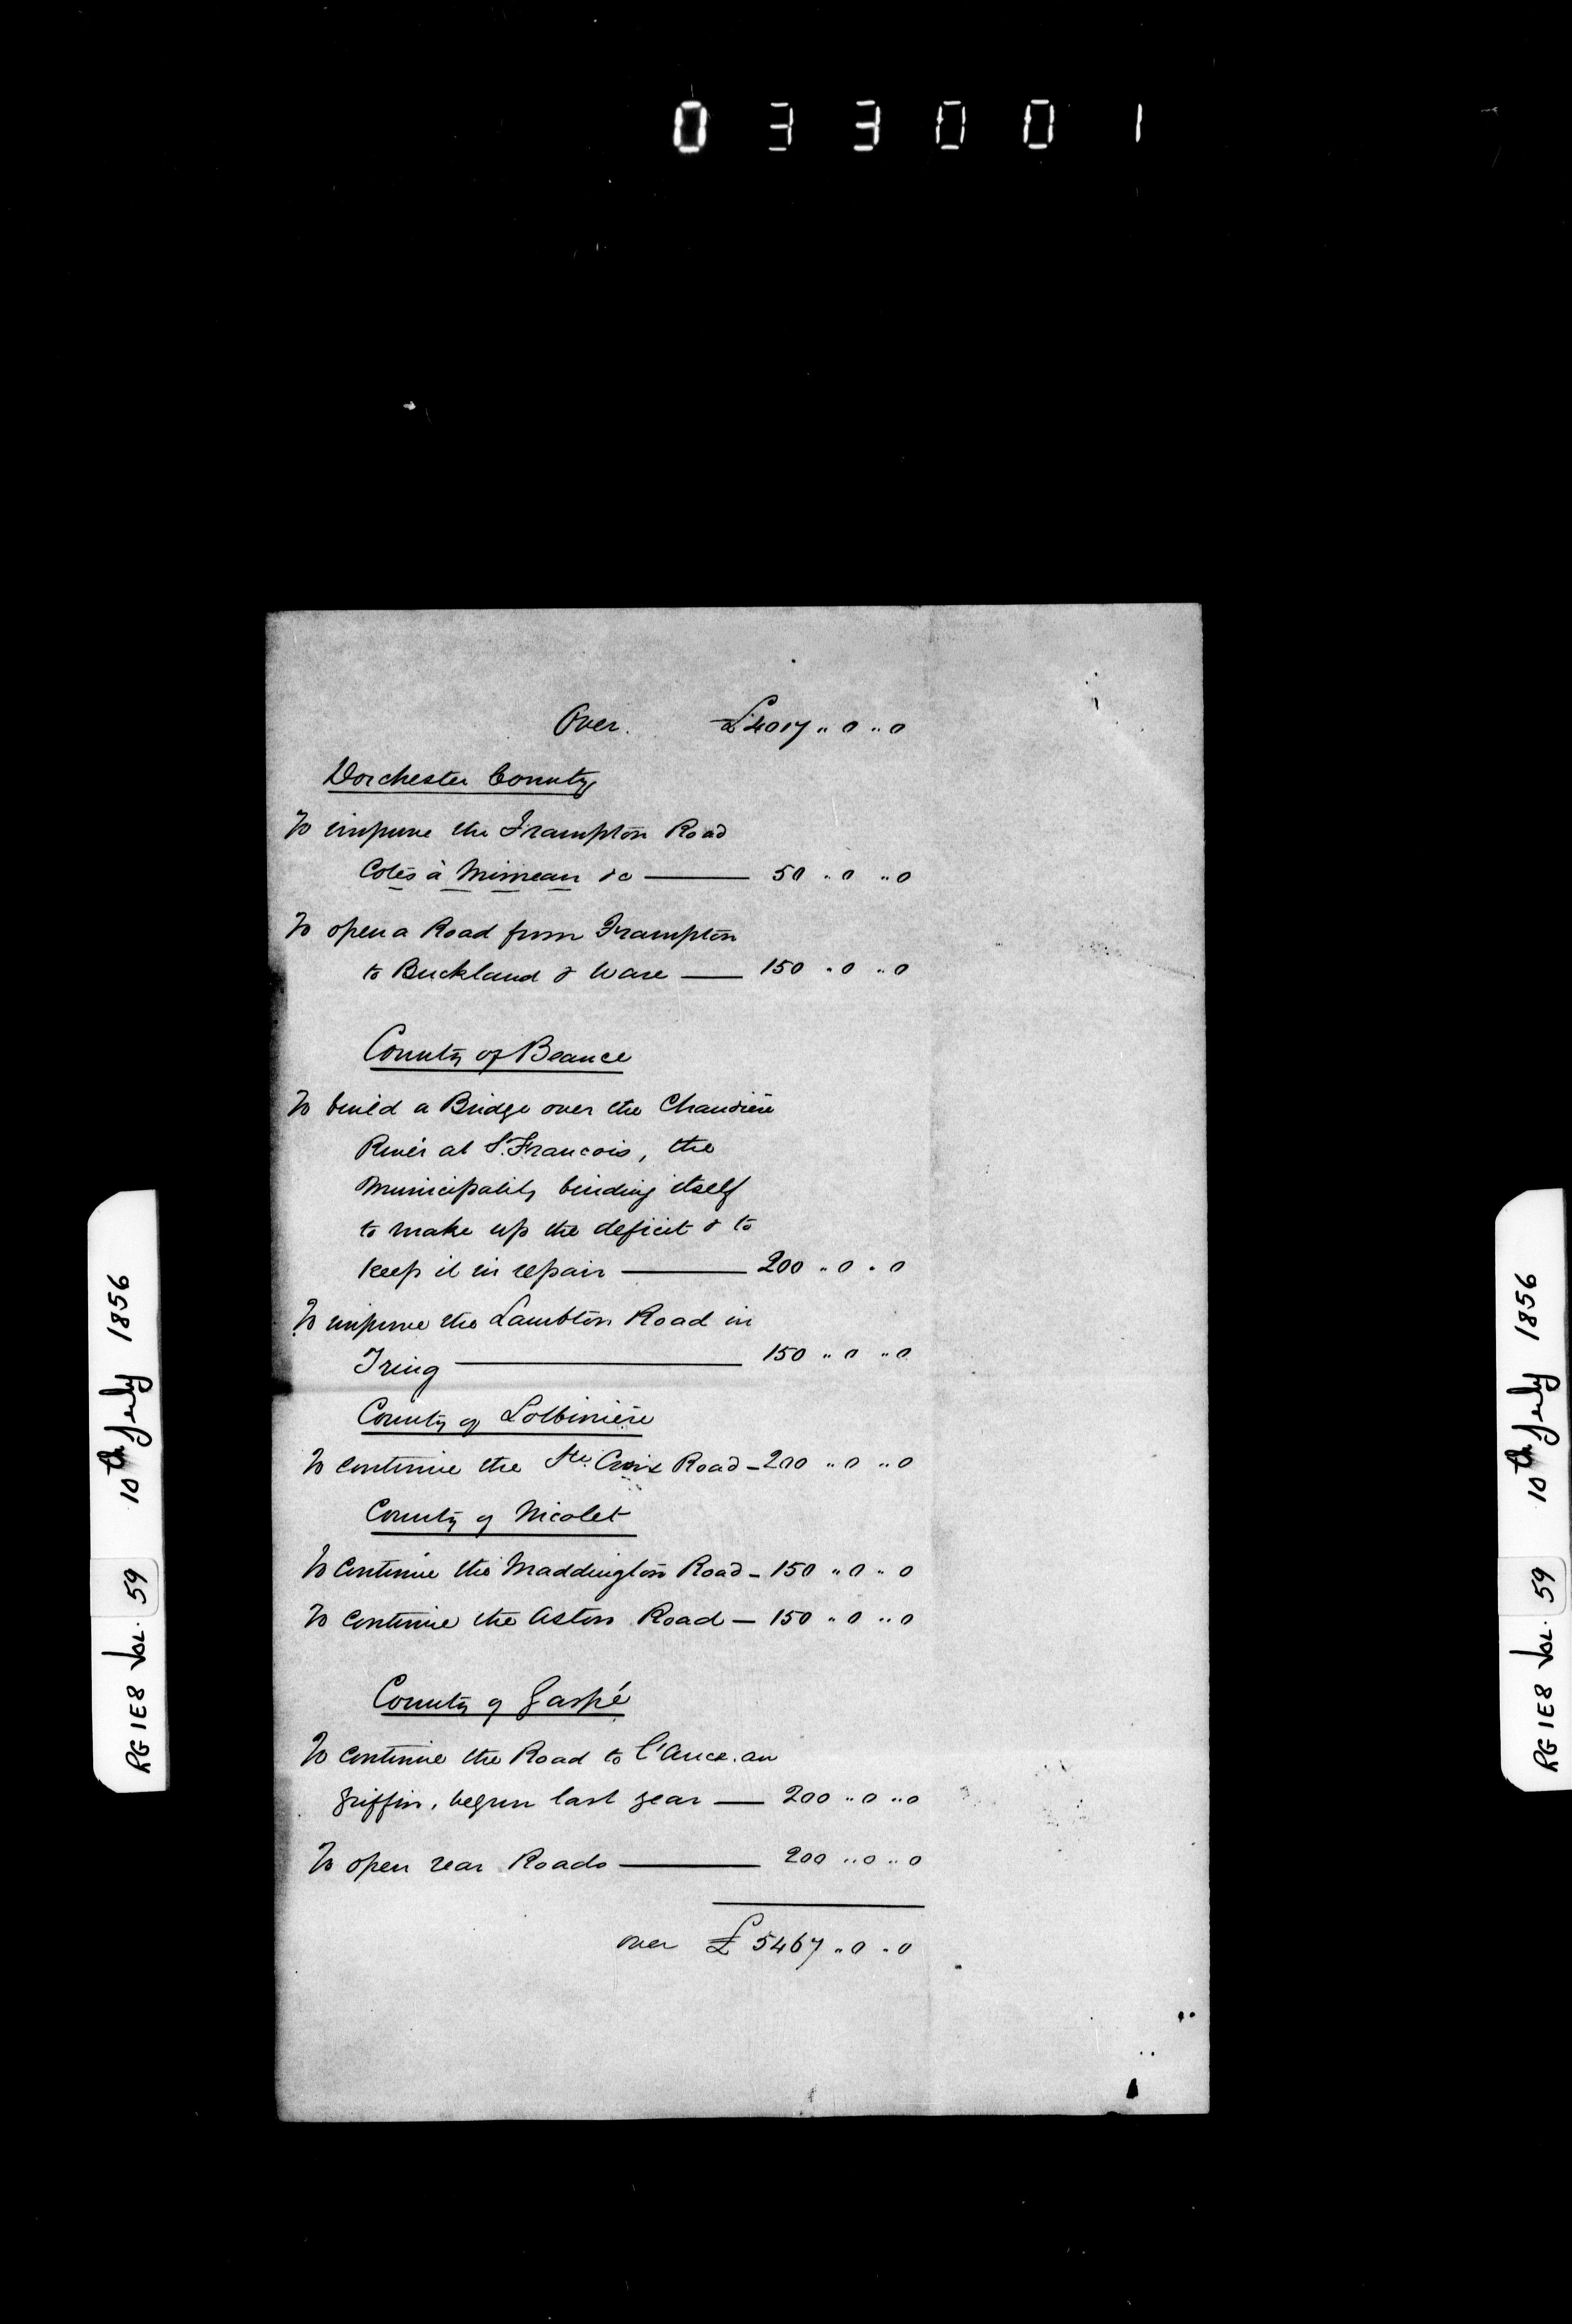 033001
Over. £4017 " 0 " 0
Dorchester County
To improve the Frampton Road
Cotes à Mimeau &c — 50 " 0 " 0
To open a Road from Frampton
to Buckland & Ware — 150 " 0 " 0
County of Beauce
To build a Bridge over the Chaudière
River at St. Francois, the
Municipality binding itself
to make up the deficit & to
keep it in repair — 200 " 0 " 0
To improve the Lambton Road in
Tring — 150 " 0 " 0
County of Lotbinière
To continue the Ste. Croix Road - 200 " 0 " 0
County of Nicolet
To continue the Maddington Road - 150 " 0 " 0
To continue the Aston Road — 150 " 0 " 0
County of Gaspé
To continue the Road to l'Ance au
Griffin, begun last year — 200 " 0 " 0
To open rear Roads — 200 " 0 " 0
over £ 5467 " 0 " 0
RG 1E8 Vol. 59 10th July 1856
RG 1E8 Vol. 59 10th July 1856